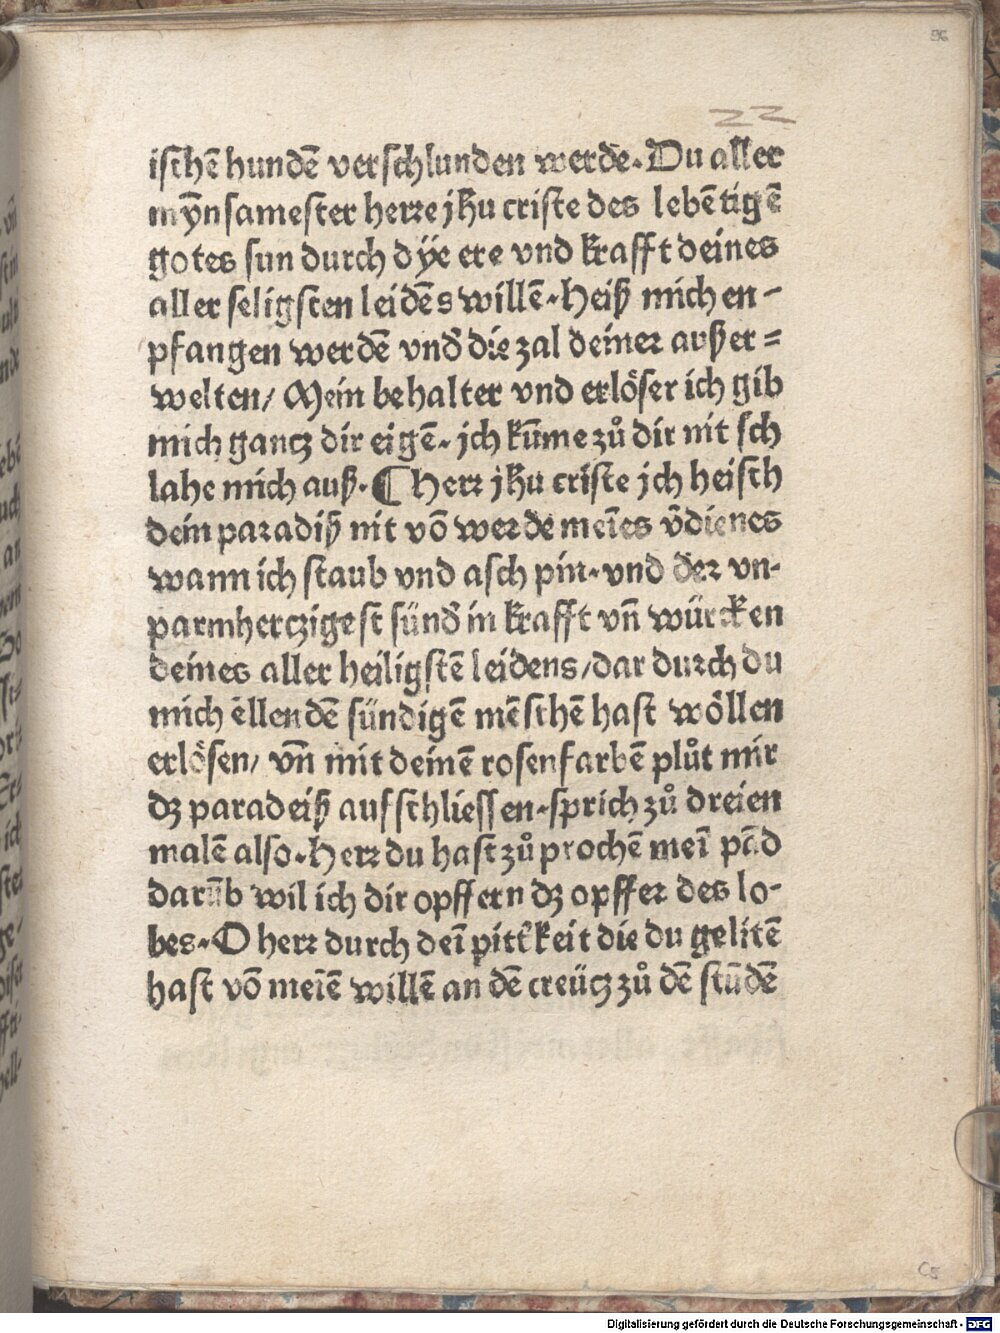 96
22
ischē hundē verschlunden werde. Du aller
mÿnsamester herre jhu criste des lebētigē
gotes sun durch dÿe ere vnd krafft deines
aller seligsten leidēs willē. Heiß mich en-
pfangen werdē vnd̄ die zal deiner außer=
welten/ Mein behalter vnd erlöser ich gib
mich gancz dir eigē. jch kūme zů dir nit sch
lahe mich auß. ¶ Herr jhu criste jch heisch
dein paradiß nit vō werde meīes v̄dienes
wann ich staub vnd asch pin. vnd der vn-
parmherczigest sünd̄ in krafft vn̄ würcken
deines aller heiligstē leidens/dar durch du
mich ellendē sündigē mēschē hast wöllen
erlösen/ vn̄ mit deinē rosenfarbē plůt mir
dz paradeiß aufschliessen. sprich zů dreien
malē also. Herr du hast zů prochē meī pād
darūb wil ich dir opffern dz opffer des lo-
bes. O herr durch deī pittkeit die du gelitē
hast vō meīē willē an dē creücz zů dē stūdē
C5
Digitalisierung gefördert durch die Deutsche Forschungsgemeinschaft - DFG